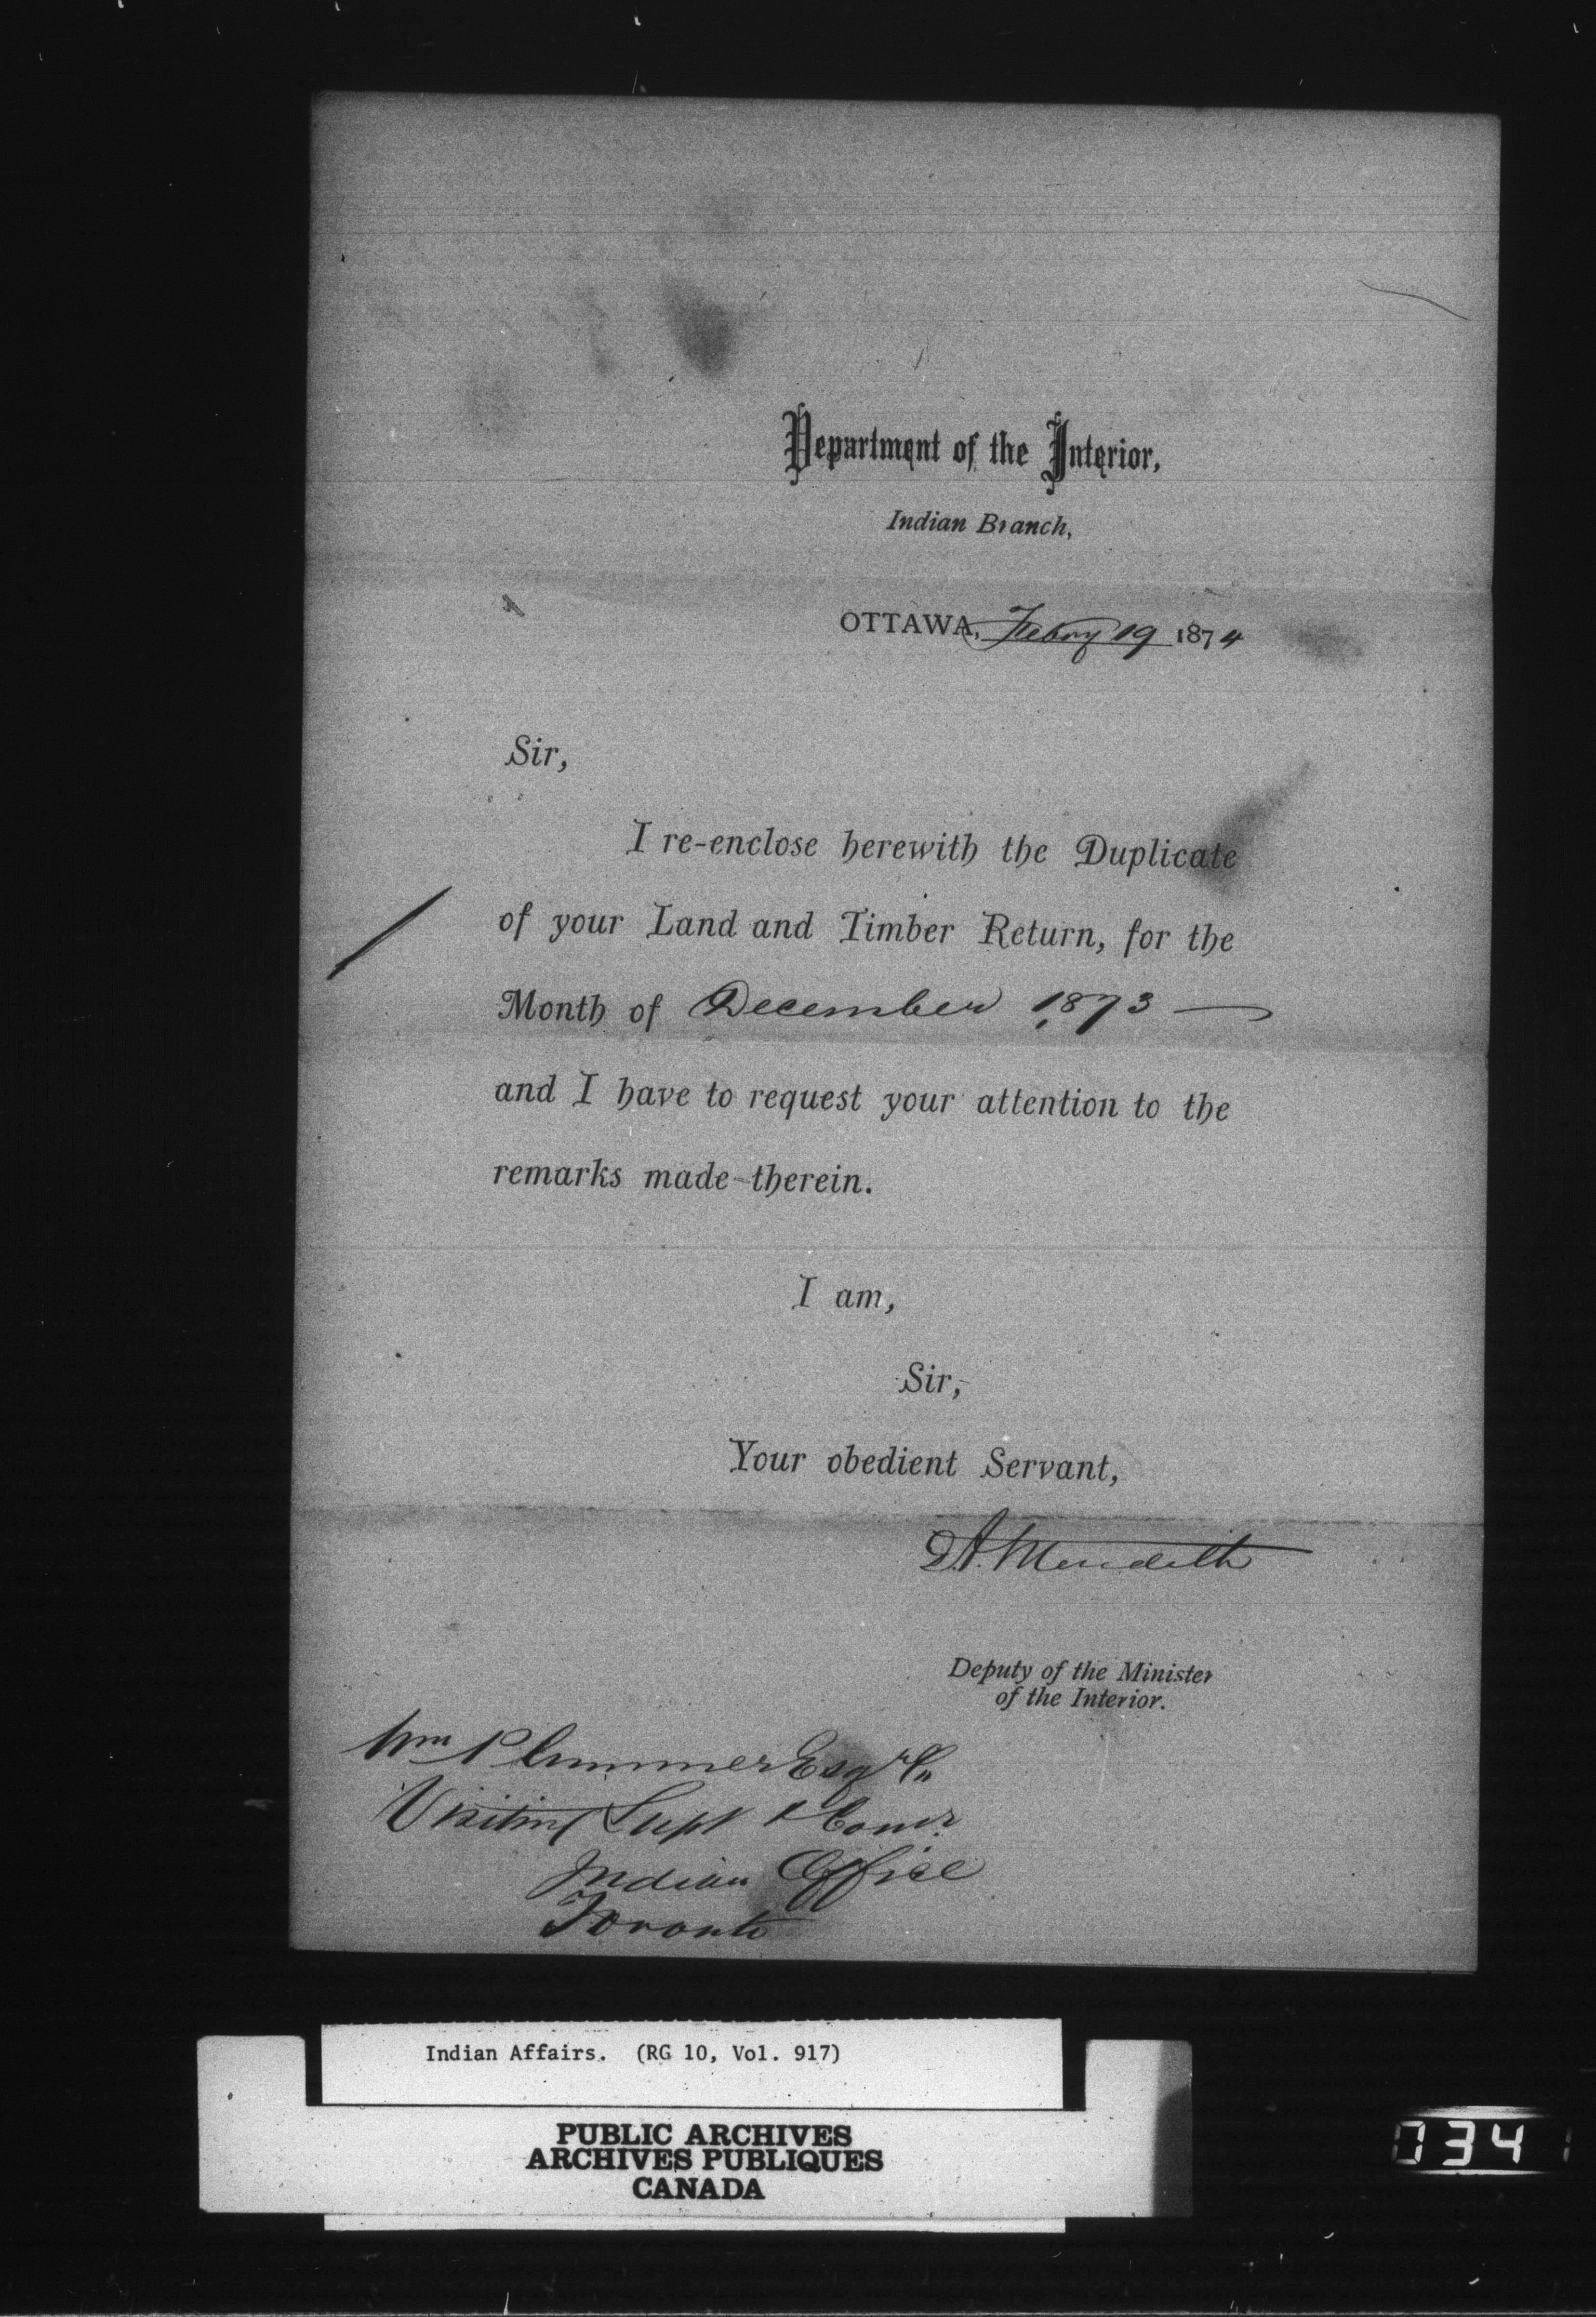 Department of the Interior,
Indian Branch,
OTTAWA, Febry 19 1874
Sir,
I re-enclose herewith the Duplicate
of your Land and Timber Return, for the
Month of December 1873 —
and I have to request your attention to the
remarks made therein.
I am,
Sir,
Your obedient Servant,
Meredith
Deputy of the Minister
of the Interior.
Wm Plummer Esqr
Visiting Supt & Comr.
Indian Office
Toronto
Indian Affairs. (RG 10, Vol. 917)
PUBLIC ARCHIVES
ARCHIVES PUBLIQUES
CANADA